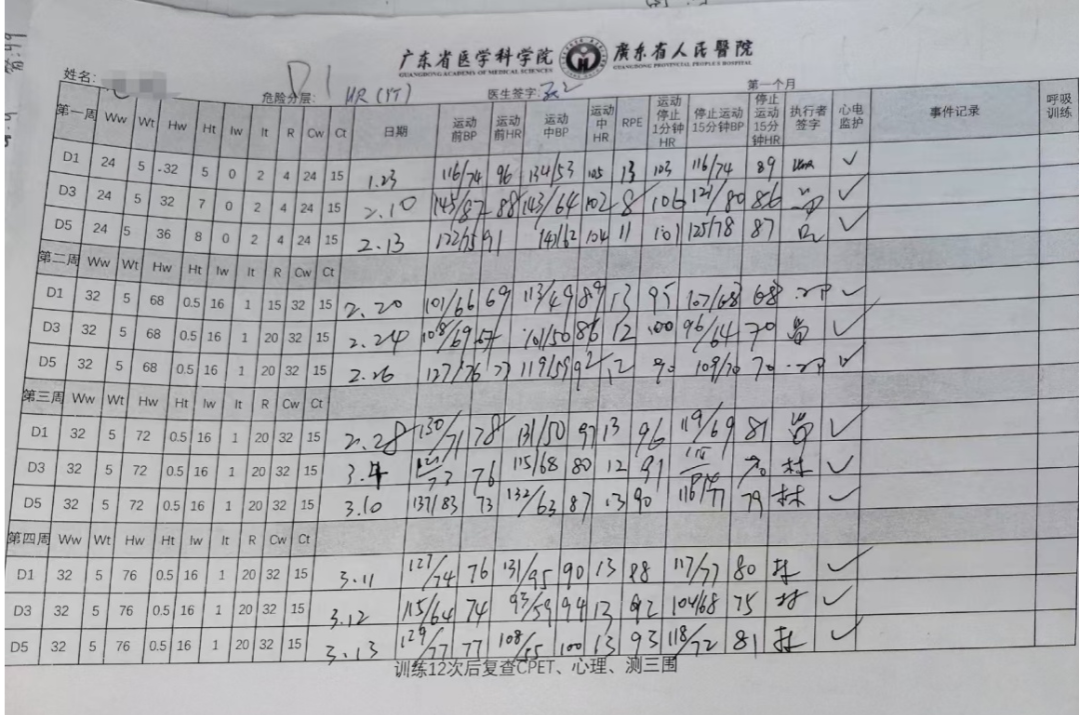 广东省医学科学院 廣东省人民醫院
GUANGDONG ACADEMY OF MEDICAL SCIENCES GUANGDONG PROVINCIAL PEOPLE'S HOSPITAL
D1
姓名: 危险分层: HR(IT) 医生签字: 第一个月
第一周 Ww Wt Hw Ht Iw It R Cw Ct 日期 运动前BP 运动前HR 运动中BP 运动中HR RPE 运动停止1分钟HR 停止运动15分钟BP 停止运动15分钟HR 执行者签字 心电监护 事件记录 呼吸训练
D1 24 5 .32 5 0 2 4 24 15 1.23 116/74 96 134/53 105 13 103 116/74 89 ✓
D3 24 5 32 7 0 2 4 24 15 2.10 145/87 88 143/64 102 8 106 121/80 86 ✓
D5 24 5 36 8 0 2 4 24 15 2.13 122/75 91 141/62 104 11 101 125/78 87 ✓
第二周 Ww Wt Hw Ht Iw It R Cw Ct
D1 32 5 68 0.5 16 1 15 32 15 2.20 101/66 69 113/49 89 13 95 107/68 68 ✓
D3 32 5 68 0.5 16 1 20 32 15 2.24 108/69 67 101/50 86 12 100 96/64 70 ✓
D5 32 5 68 0.5 16 1 20 32 15 2.26 127/76 77 119/59 92 12 90 109/70 70 ✓
第三周 Ww Wt Hw Ht Iw It R Cw Ct
D1 32 5 72 0.5 16 1 20 32 15 2.28 130/71 78 131/50 97 13 96 119/69 81 ✓
D3 32 5 72 0.5 16 1 20 32 15 3.4 76 115/68 80 12 91 70 林 ✓
D5 32 5 72 0.5 16 1 20 32 15 3.10 137/83 73 132/63 87 13 90 116/77 79 林 ✓
第四周 Ww Wt Hw Ht Iw It R Cw Ct
D1 32 5 76 0.5 16 1 20 32 15 3.11 127/74 76 131/95 90 13 88 117/77 80 林 ✓
D3 32 5 76 0.5 16 1 20 32 15 3.12 115/64 74 93/59 94 13 92 104/68 75 林 ✓
D5 32 5 76 0.5 16 1 20 32 15 3.13 129/77 77 108/55 100 13 93 118/72 81 林 ✓
训练12次后复查CPET、心理、测三围